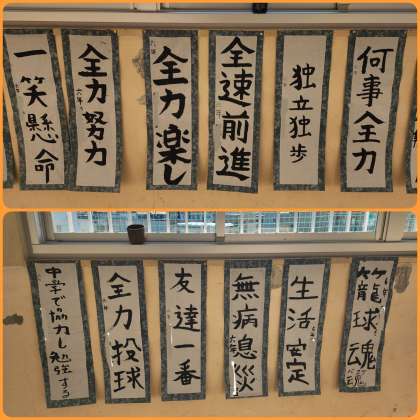 何事全力
独立独歩
全速前進
全力楽し
全力努力
一笑懸命
籠球魂
生活安定
無病息災
友達一番
全力投球
中学で協力し勉強する